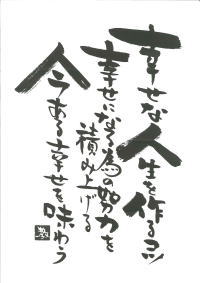 幸せな人生を作るコツ
幸せになる為の努力を
積み上げる
今ある幸せを味わう